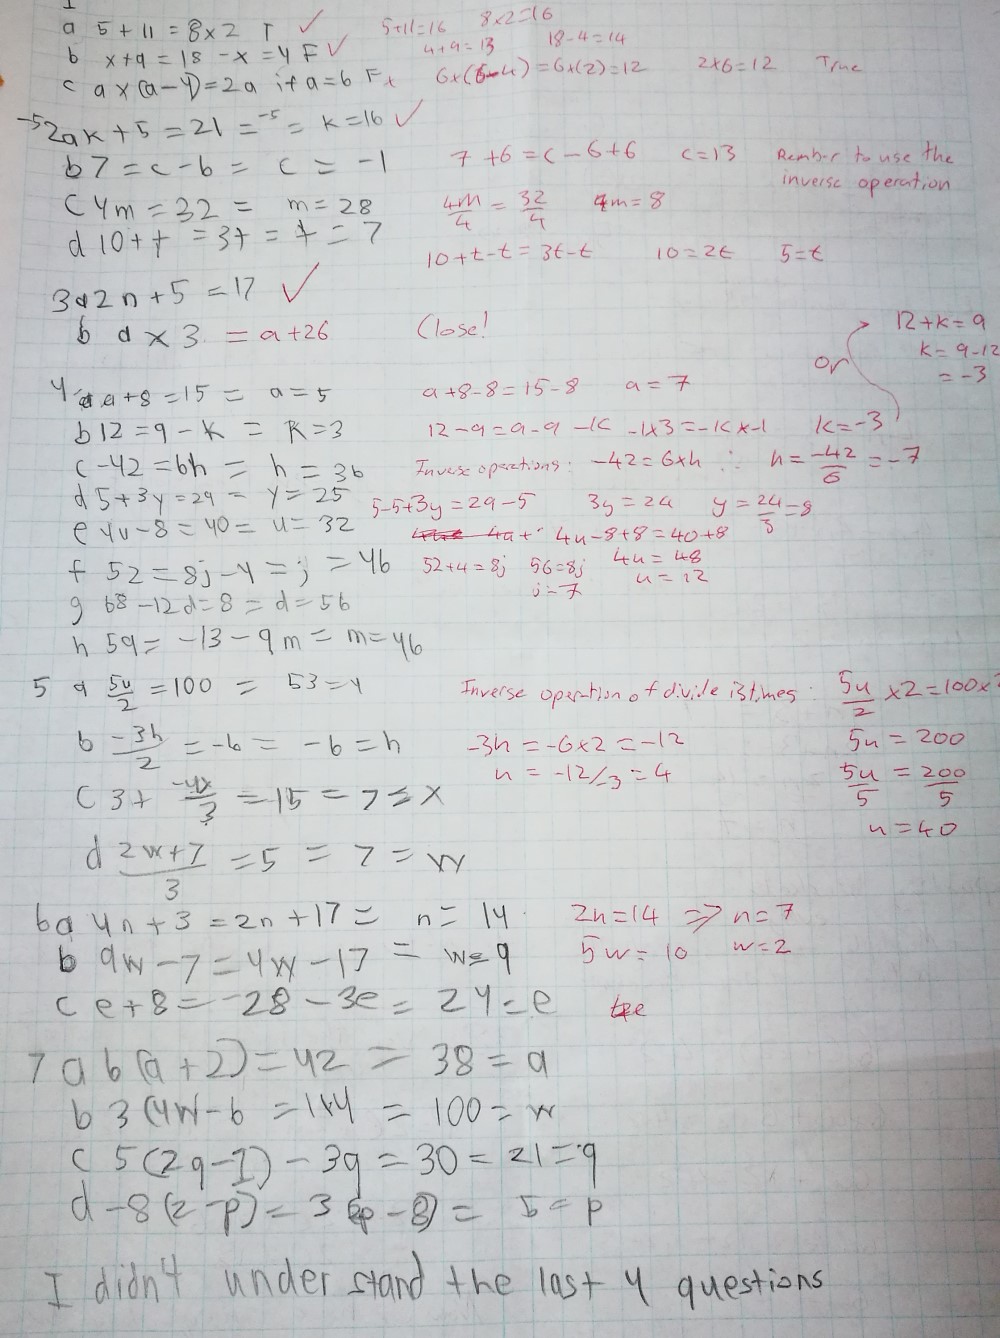 1
a 5 + 11 = 8 x 2 T ✓ 5+11=16 8x2=16
b x+9 = 18 -x = 4 F ✓ 4+9=13 18-4=14
c a x (a-4)=2a if a=6 F x 6x(6-4)=6x(2)=12 2x6=12 True
-5 2a k + 5 = 21 = -5 = k=16 ✓
b 7 = c - 6 = c = -1 7 +6 = c - 6 +6 c=13 Rember to use the
inverse operation
c 4m = 32 = m = 28 4m/4 = 32/4 m = 8
d 10 + t = 3t = t = 7 10+t-t = 3t-t 10=2t 5=t
3a 2n + 5 = 17 ✓
b a x 3 = a+26 Close!
12+k=9
k = 9-12
= -3
or
4 a a+8 = 15 = a=5 a+8-8=15-8 a=7
b 12 = 9 - k = k=3 12-9=9-9-k -1x3=-kx-1 k=-3
c -42 = 6h = h = 36 Inverse operations: -42=6xh ∴ h=-42/6=-7
d 5+3y=29 = y=25 5-5+3y=29-5 3y=24 y=24/3=8
e 4u-8=40= u=32 4u-8+8=40+8
f 52=8j-4=j=46 52+4=8j 56=8j 4u=48
j=7 u=12
g 68-12d=8=d=56
h 59=-13-9m=m=46
5 a 5u/2=100 = 53=u Inverse operation of divide is times: 5u/2 x2=100x2
5u = 200
b -3h/2 = -6 = -6=h -3h = -6x2=-12
h = -12/3=4 5u/5 = 200/5
c 3+ -4x/3 = 15 = 7 = x
u=40
d 2w+7/3 = 5 = 7 = w
6a 4n+3=2n+17= n=14 2n=14 ⇒ n=7
b 9w-7=4w-17 = w=9 5w=10 w=2
c e+8=-28-3e= 24=e
7 a 6(a+2)=42 = 38=a
b 3(4w-6 =144 = 100=w
c 5(2q-1)-3q=30=21=q
d -8(2-p)=3(p-8)= 5=p
I didn't understand the last 4 questions